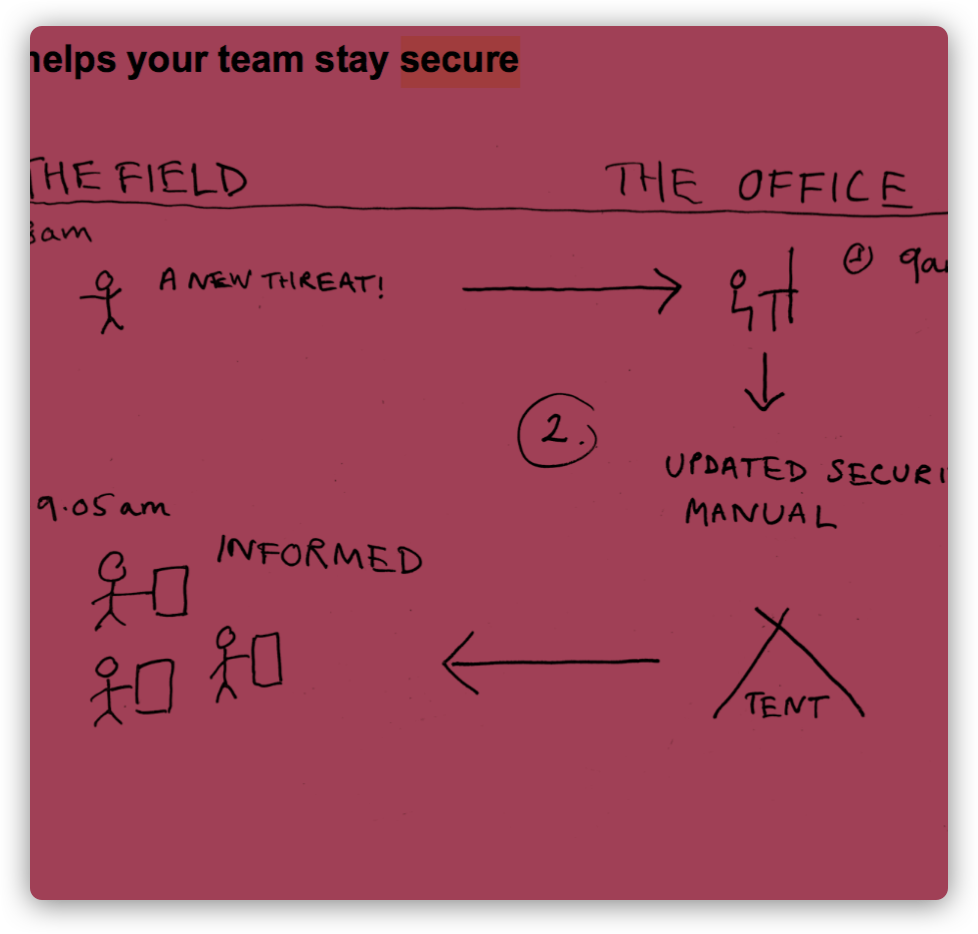 helps your team stay secure
THE FIELD
THE OFFICE
8am
A NEW THREAT!
① 9am
2.
UPDATED SECURI
MANUAL
9.05am
INFORMED
TENT